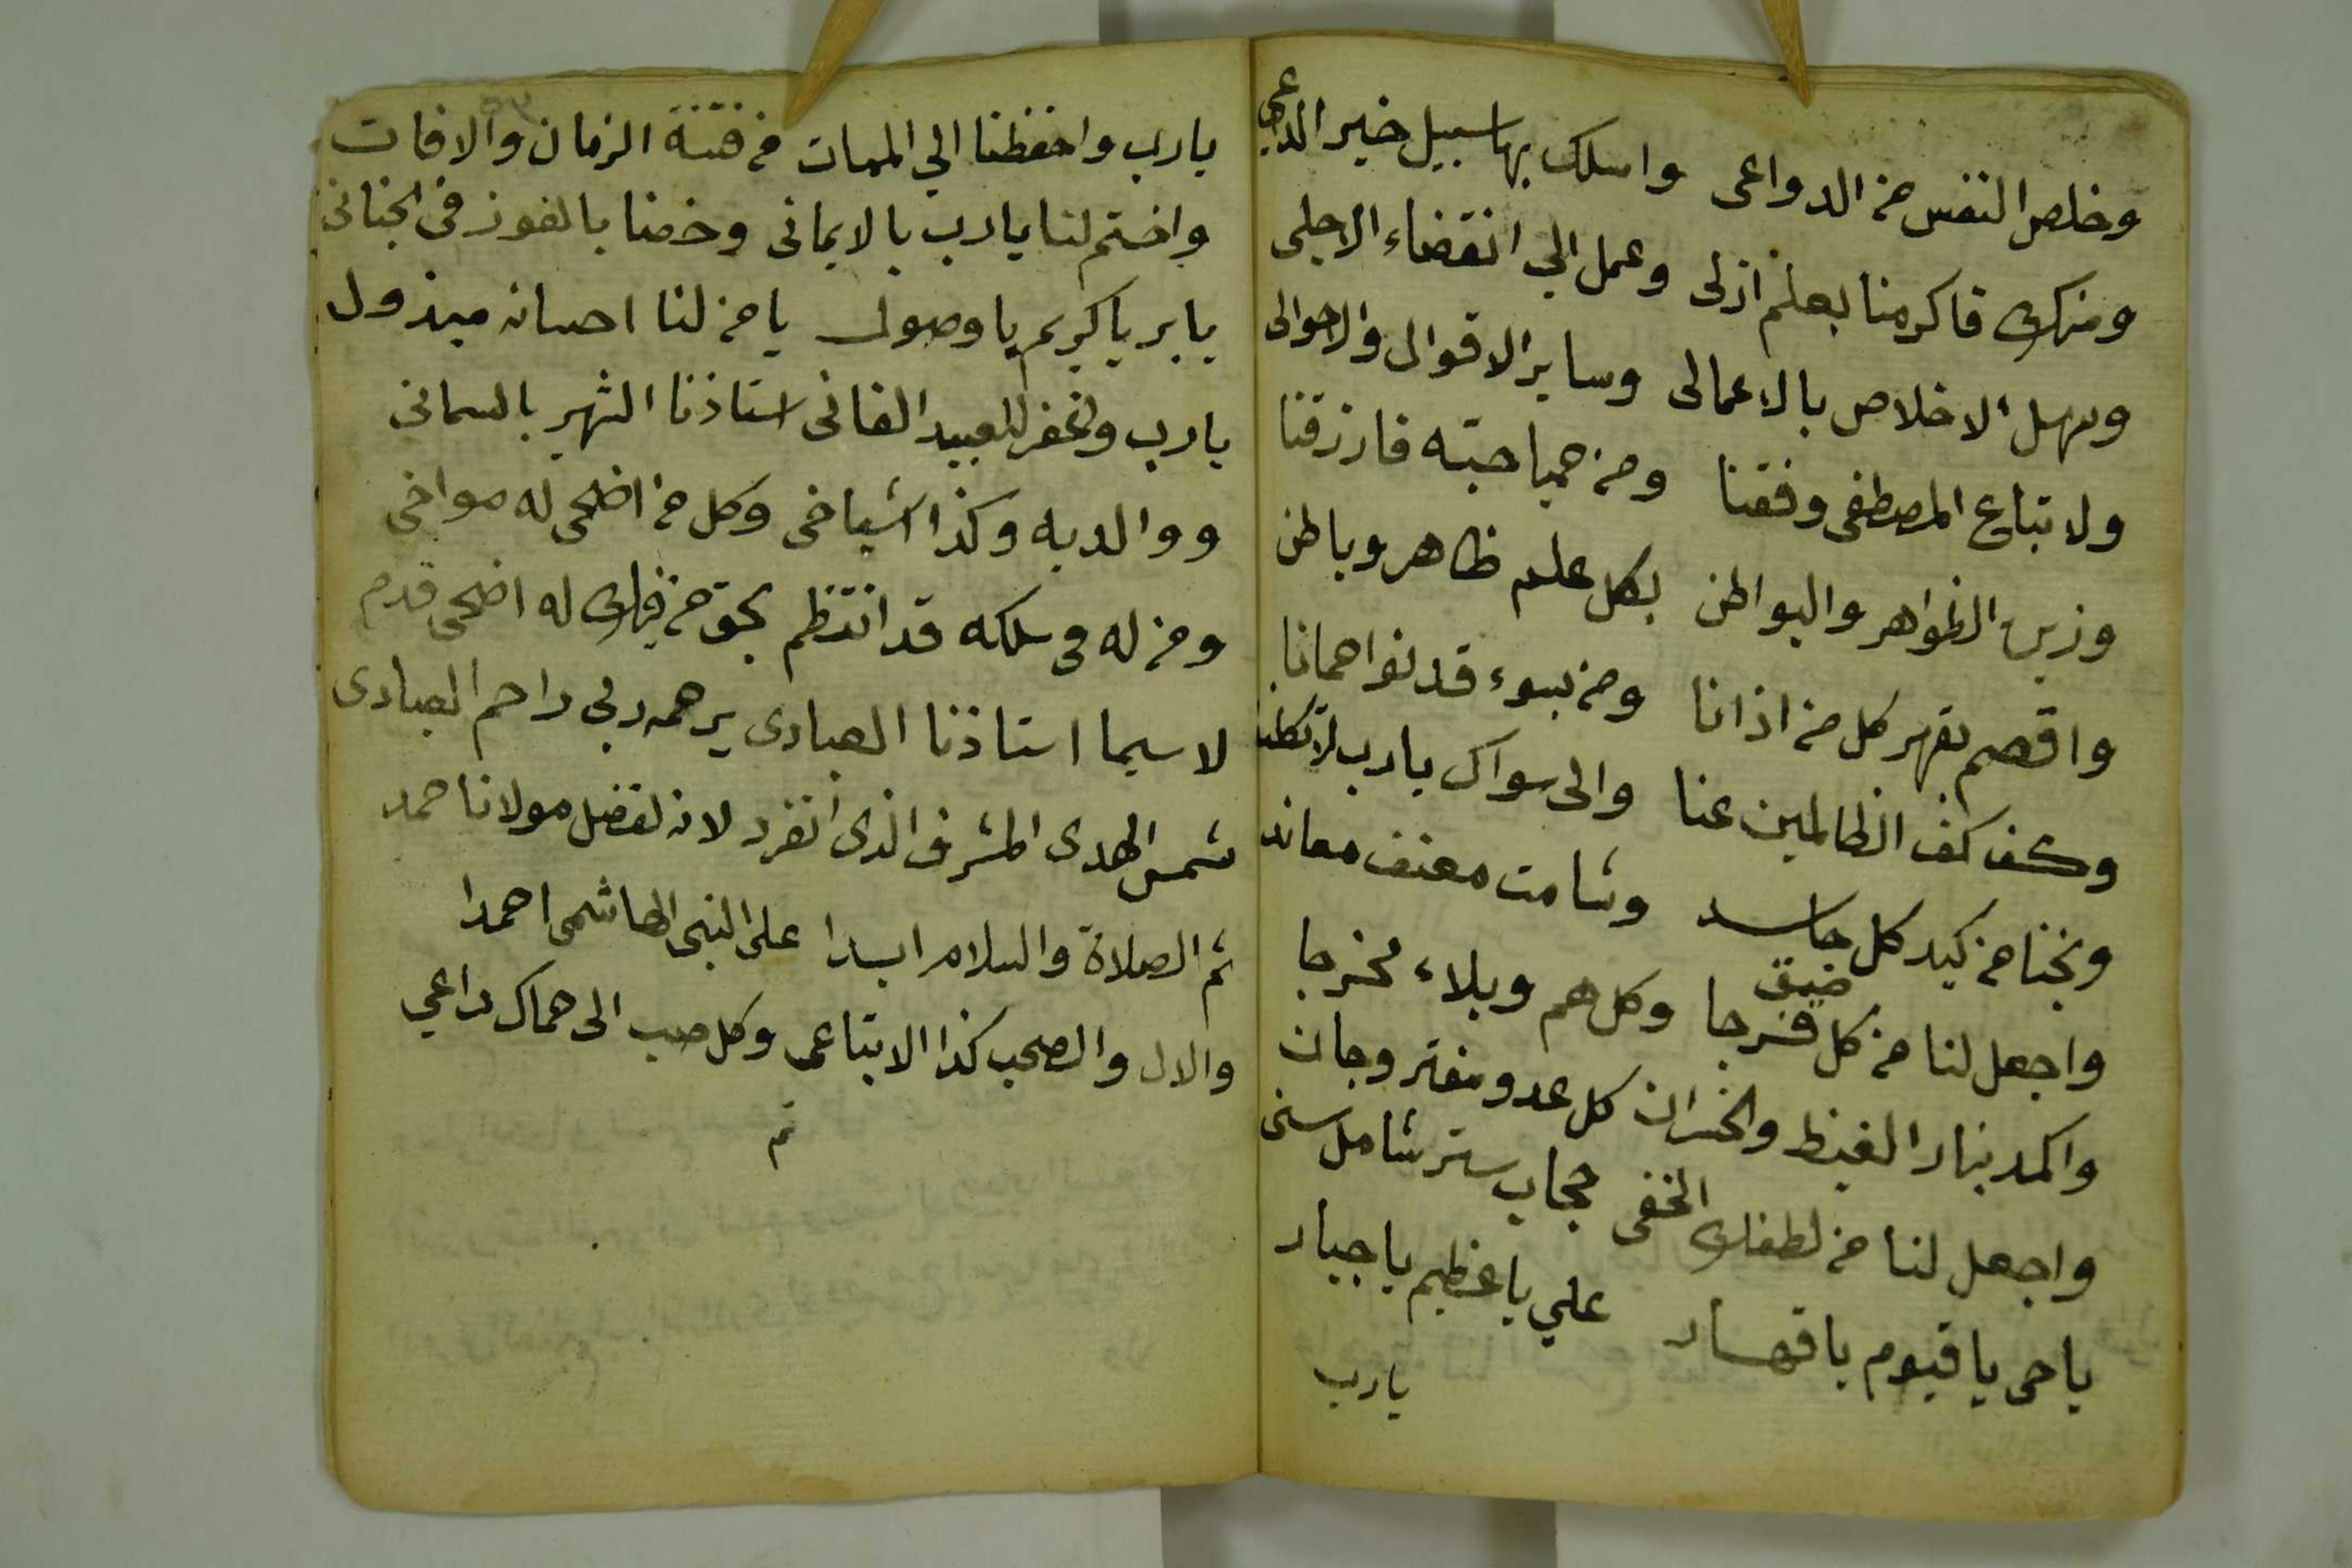 وخلص النفس من الدواعى واسلك بها سبيل خير الداعي
ومنك فاكرمنا بعلم ازلى وعمل الي انقضاء الاجلى
وسهل الاخلاص بالاعمالى وساير الاقوال والاحوالى
ولاتباع المصطفى وفقنا ومن حميا حبته فارزقنا
وزين الظواهر والبواطن بكل علم ظاهر وباطن
واقصم بقهر كل من اذانا ومن بسوء قد نوا حمانا
وكف كف الظالمين عنا والى سواك يارب لا تكلنا
ونجنا من كيد كل حاسد وشامت معنف معاند
واجعل لنا من كل ضيق فرجا وكل هم وبلاء مخرجا
واكمد بنار الغيظ والخسران كل عدو مفتر وجان
واجعل لنا من لطفك الخفى حجاب ستر شامل سنى
ياحى ياقيوم ياقهار علي ياعظيم ياجبار
يارب
يارب واحفظنا الي الممات من فتنة الزمان والافات
واختم لنا يارب بالايمانى وخصنا بالفوز فى الجنانى
يابر ياكريم ياوصول يامن لنا احسانه مبذول
يارب واغفر للعبيد الفانى استاذنا الشهير بالسمانى
ووالديه وكذا اشياخى وكل من اضحى له مواخى
ومن له فى سلكه قد انتظم بحق من فيك له اضحى قدم
لاسيما استاذنا العبادى يرحمه ربى راحم العبادى
شمس الهدى المشرف الذى انفرد لانه لفضل مولانا حمد
ثم الصلاة والسلام ابدا على النبى الهاشمى احمدا
والال والصحب كذا الاتباعى وكل صب الى حماك داعي
تم